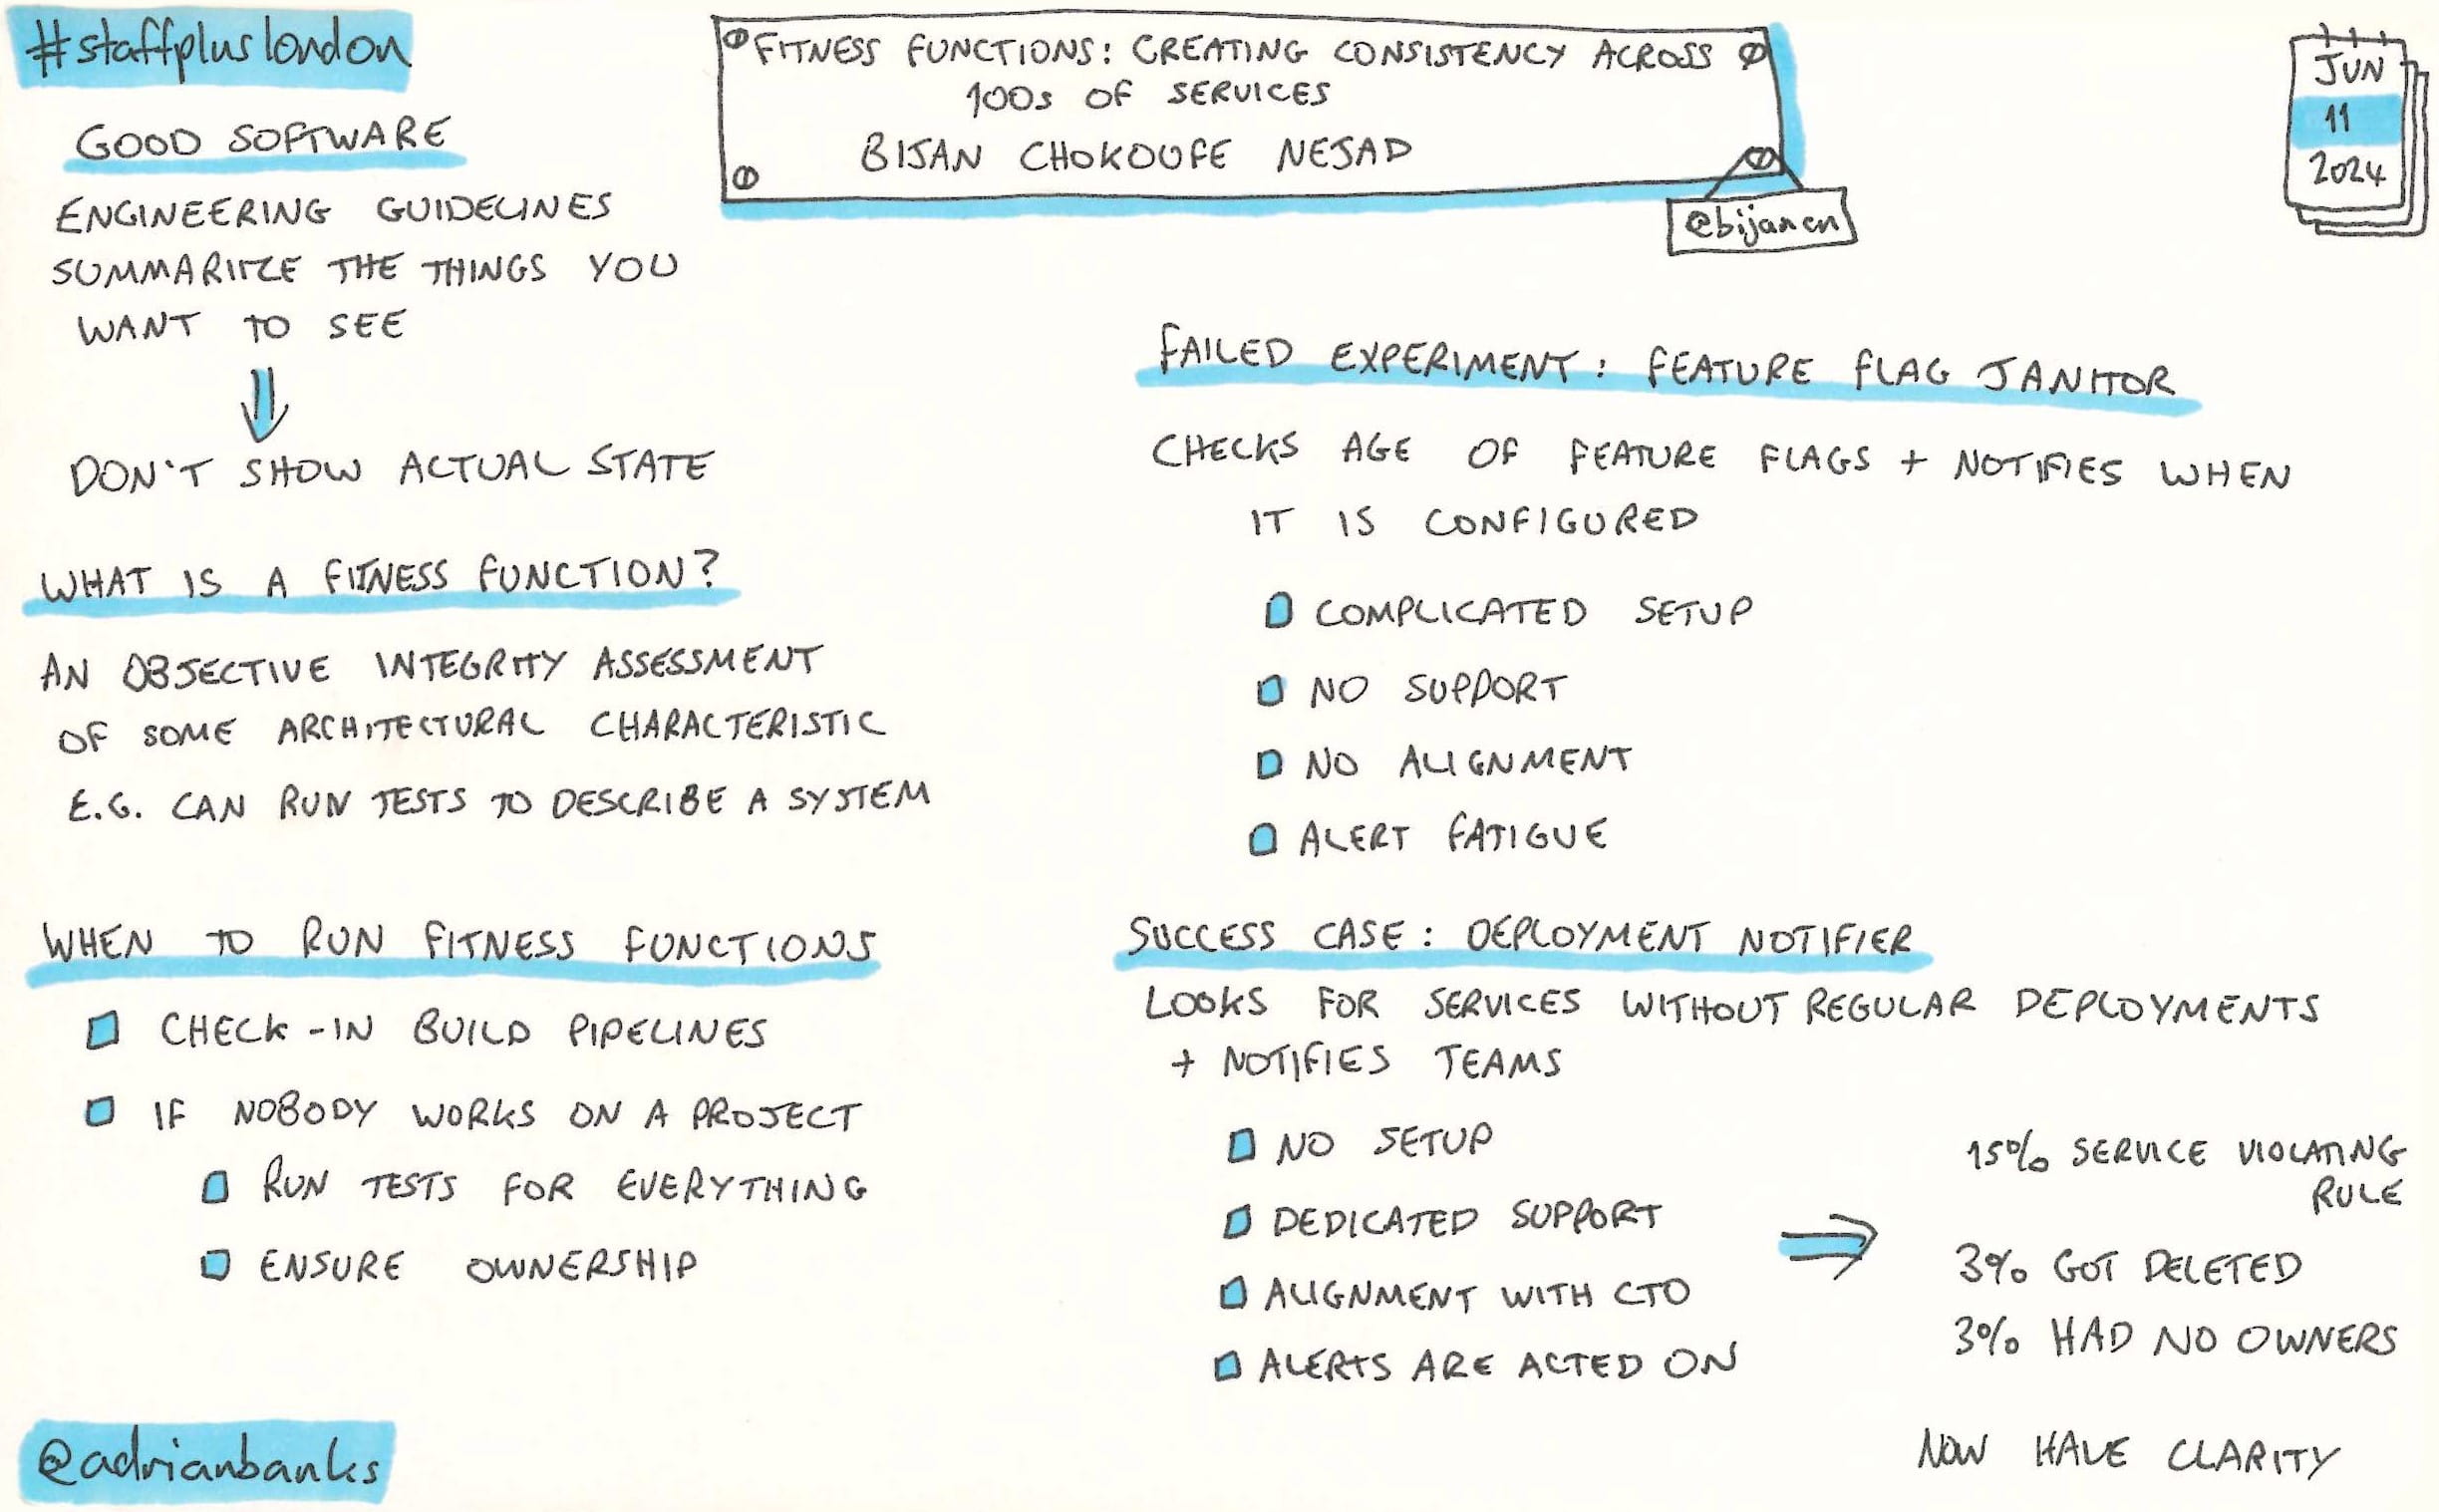 #staffpluslondon
FITNESS FUNCTIONS: CREATING CONSISTENCY ACROSS
100s OF SERVICES
BIJAN CHOKOUFE NEJAD
@bijancn
JUN
11
2024
GOOD SOFTWARE
ENGINEERING GUIDELINES
SUMMARIZE THE THINGS YOU
WANT TO SEE
DON'T SHOW ACTUAL STATE
WHAT IS A FITNESS FUNCTION?
AN OBJECTIVE INTEGRITY ASSESSMENT
OF SOME ARCHITECTURAL CHARACTERISTIC
E.G. CAN RUN TESTS TO DESCRIBE A SYSTEM
WHEN TO RUN FITNESS FUNCTIONS
CHECK-IN BUILD PIPELINES
IF NOBODY WORKS ON A PROJECT
RUN TESTS FOR EVERYTHING
ENSURE OWNERSHIP
FAILED EXPERIMENT: FEATURE FLAG JANITOR
CHECKS AGE OF FEATURE FLAGS + NOTIFIES WHEN
IT IS CONFIGURED
COMPLICATED SETUP
NO SUPPORT
NO ALIGNMENT
ALERT FATIGUE
SUCCESS CASE: DEPLOYMENT NOTIFIER
LOOKS FOR SERVICES WITHOUT REGULAR DEPLOYMENTS
+ NOTIFIES TEAMS
NO SETUP
DEDICATED SUPPORT
ALIGNMENT WITH CTO
ALERTS ARE ACTED ON
15% SERVICE VIOLATING
RULE
3% GOT DELETED
3% HAD NO OWNERS
NOW HAVE CLARITY
@adrianbanks